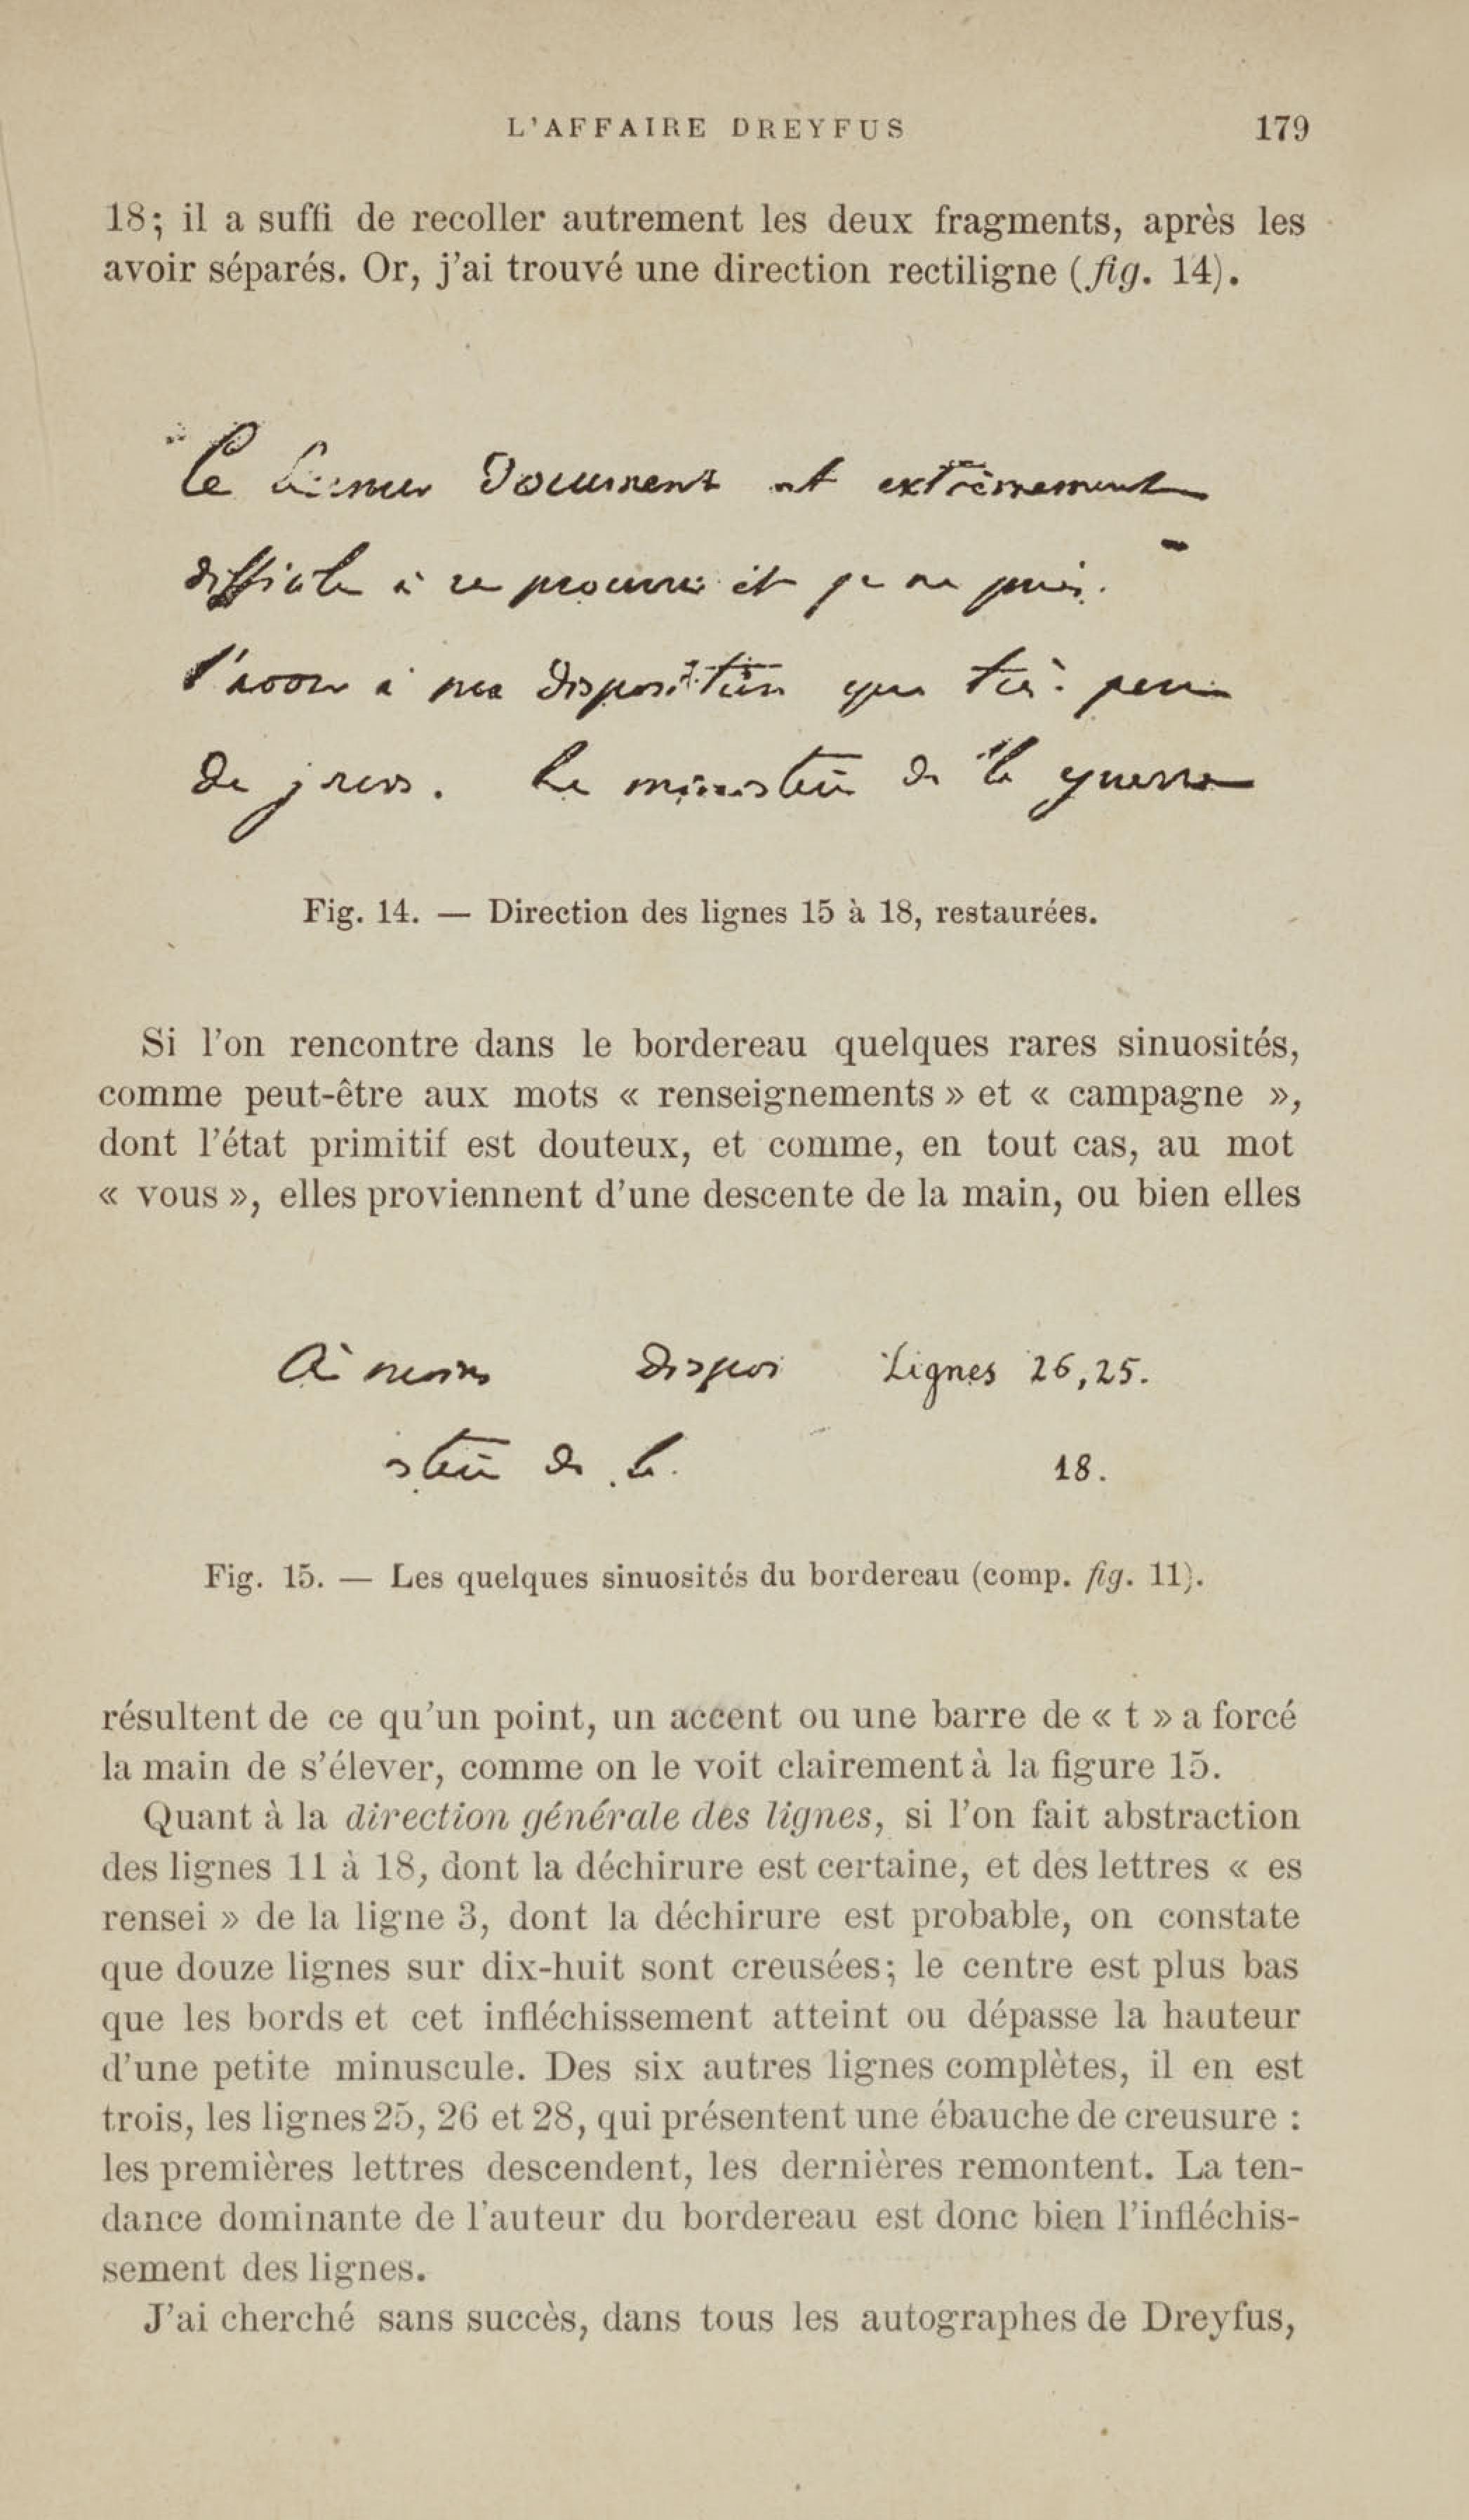 L'AFFAIRE DREYFUS 179
18; il a suffi de recoller autrement les deux fragments, après les
avoir séparés. Or, j'ai trouvé une direction rectiligne (fig. 14).
Ce dernier document est extrêmement
difficile à se procurer et je ne puis
l'avoir à ma disposition que très peu
de jours. Le ministère de la guerre
Fig. 14. — Direction des lignes 15 à 18, restaurées.
Si l'on rencontre dans le bordereau quelques rares sinuosités,
comme peut-être aux mots « renseignements » et « campagne »,
dont l'état primitif est douteux, et comme, en tout cas, au mot
« vous », elles proviennent d'une descente de la main, ou bien elles
A moins dispos Lignes 26,25.
stère de la 18.
Fig. 15. — Les quelques sinuosités du bordereau (comp. fig. 11).
résultent de ce qu'un point, un accent ou une barre de « t » a forcé
la main de s'élever, comme on le voit clairement à la figure 15.
Quant à la direction générale des lignes, si l'on fait abstraction
des lignes 11 à 18, dont la déchirure est certaine, et des lettres « es
rensei » de la ligne 3, dont la déchirure est probable, on constate
que douze lignes sur dix-huit sont creusées; le centre est plus bas
que les bords et cet infléchissement atteint ou dépasse la hauteur
d'une petite minuscule. Des six autres lignes complètes, il en est
trois, les lignes 25, 26 et 28, qui présentent une ébauche de creusure :
les premières lettres descendent, les dernières remontent. La ten-
dance dominante de l'auteur du bordereau est donc bien l'infléchis-
sement des lignes.
J'ai cherché sans succès, dans tous les autographes de Dreyfus,